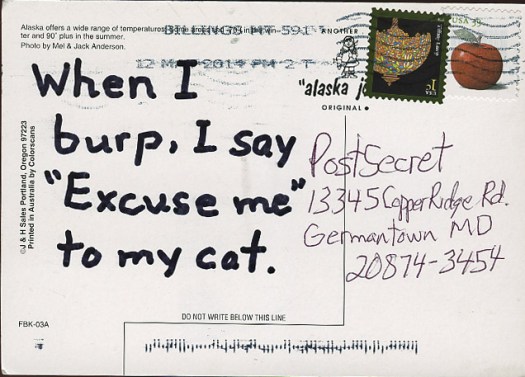 Alaska offers a wide range of temperatures.
ter and 90° plus in the summer.
Photo by Mel & Jack Anderson.
MT 591
12 MAR 2014 PM 2 T
ANOTHER
"alaska
ORIGINAL
USA 1c
USA
When I
burp, I say
"Excuse me"
to my cat.
PostSecret
13345 Copper Ridge Rd.
Germantown MD
20874-3454
©J & H Sales Portland, Oregon 97223
Printed in Australia by Colorscans
DO NOT WRITE BELOW THIS LINE
FBK-03A